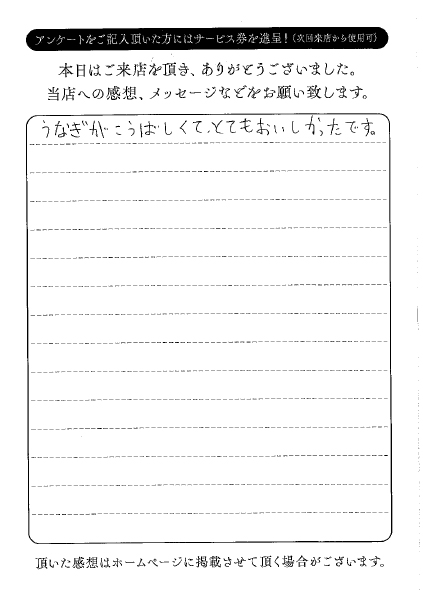 アンケートをご記入頂いた方にはサービス券を進呈!(次回来店から使用可)
本日はご来店を頂き、ありがとうございました。
当店への感想、メッセージなどをお願い致します。
うなぎがこうばしくて、とてもおいしかったです。
頂いた感想はホームページに掲載させて頂く場合がございます。